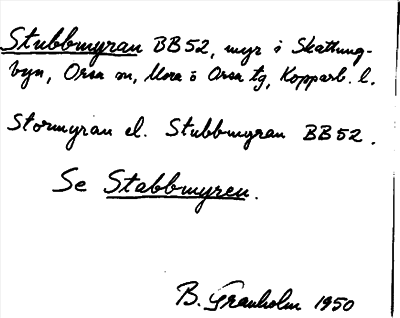 Stubbmyran BB52, myr i Skattung-
byn, Orsa sn, Mora o Orsa tg, Kopparb. l.
Stormyran el. Stubbmyran BB52.
Se Stabbmyren.
B. Granholm 1950